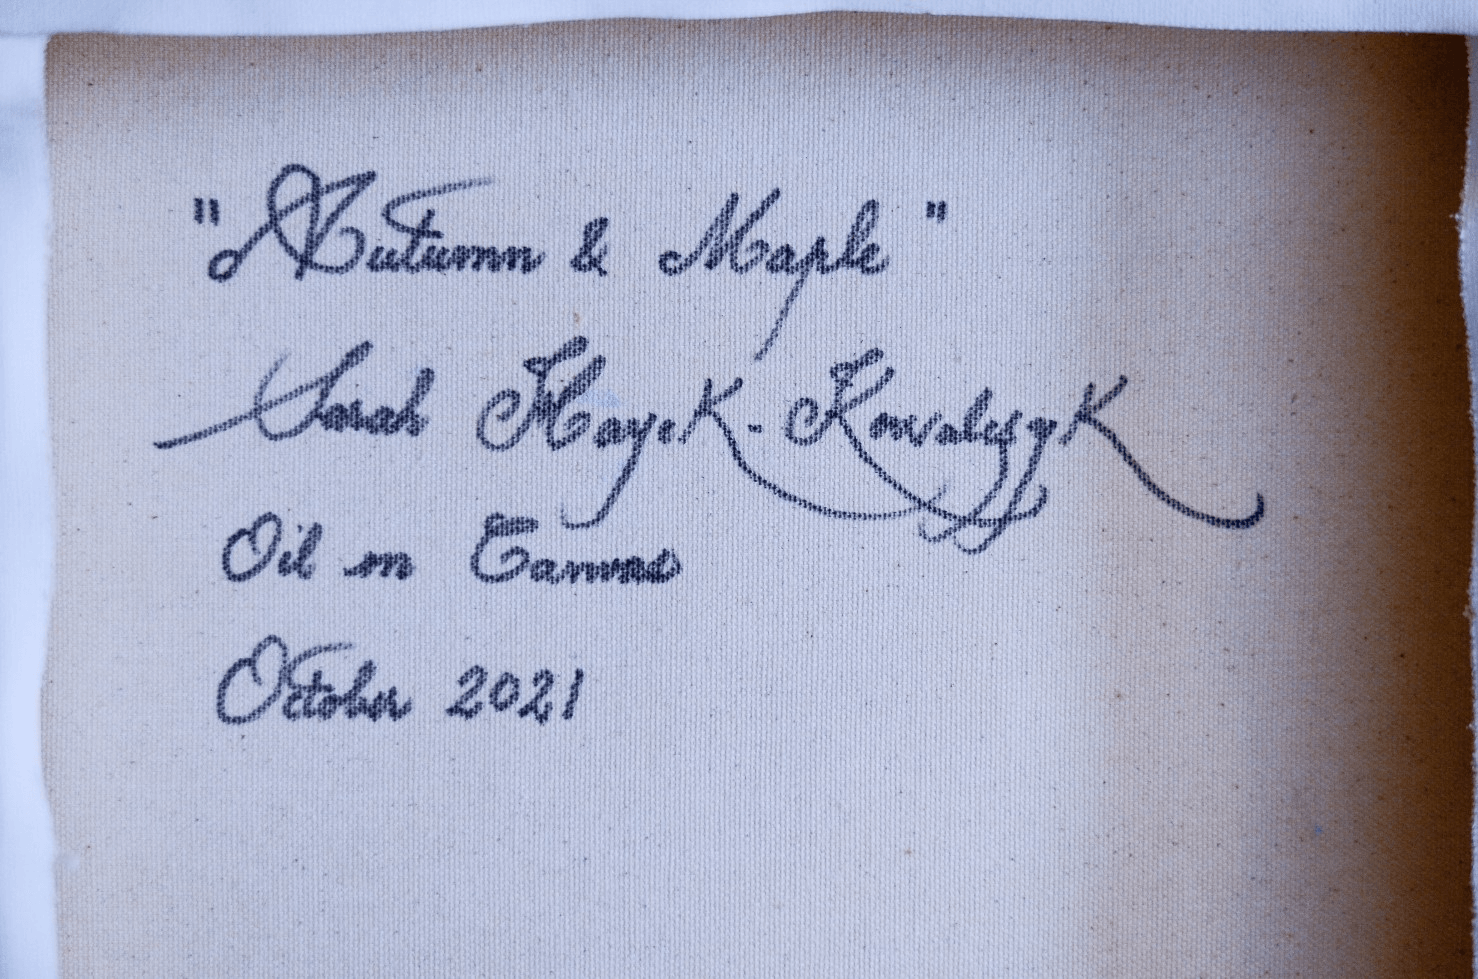 "Autumn & Maple"
Sarah Hayek-Kowalczyk
Oil on Canvas
October 2021